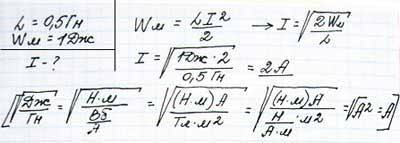 L = 0,5Гн
Wм = 1Дж
I - ?
Wм = LI²/2 → I = √(2Wм/L)
I = √(1Дж·2/0,5Гн) = 2А
[√(Дж/Гн) = √(Н·м/(Вб/А)) = √((Н·м)А/(Тл·м²)) = √((Н·м)А/(Н/(А·м)·м²)) = √А² = А]